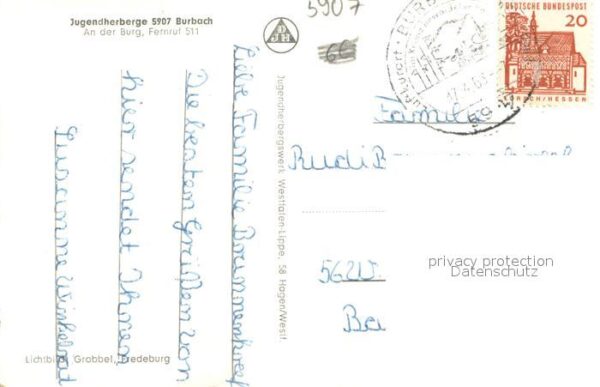 Jugendherberge 5907 Burbach
An der Burg, Fernruf 511
DJH
5907
66
Luftkurort · BURB
17.4.6
590
DEUTSCHE BUNDESPOST
20
LORSCH/HESSEN
Liebe Familie
Die besten Grüße von
hier sendet Ihnen
Susanne
Jugendherbergswerk Westfalen-Lippe, 58 Hagen/Westf.
Familie
Rudi B
562
Ba
privacy protection
Datenschutz
Lichtbild: Grobbel, Fredeburg